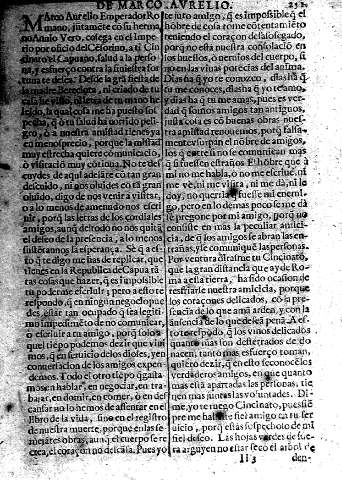 DE MARCO AVRELIO.
Marco Aurelio Emperador Ro
mano, jũtamẽte cõ su herma
no Annio Vero, colega en el impe
rio por oficio del Césorino, a ti Cin
cinato el Capuano, salud a la perso
na, y esfuerço contra la siniestra for
tuna te desea. Desde la grã fiesta de
la madre Berecinta, ni criado de tu
casa he visto, ni letra de tu mano he
leido, la qual cosa me ha puesto sos
pecha, q̃ ò tu salud ha corrido peli-
gro, ò a nuestra amistad tienes ya
en menosprecio, porque la amistad
muy estrecha quiere comunicació,
ò visitació muy cotina. No te des
cuydes de aqui adelãte cõ tan gran
descuido, ni nos oluides cõ ta gran
oluido, digo de nos venir a visitar,
o a lo menos de amenudo nos escri
uir, porq̃ las letras de los cordiales
amigos, aunq̃ del todo no nos quitã
el deseo de la presencia, a lo menos
sustétannos la esperança. Se q̃ a es-
to q̃ te digo me has de replicar, que
tienes en la Republica de Capua tã
tas cosas que hazer, q̃ es imposible
tu poderme escriuir: pero a esto te
respondo, q̃ en ningun negocio pue
des estar tan ocupado q̃ sea legiti-
mo impedimẽto de no comunicar,
q̃ escriuir a tu amigo, porq̃ todo a-
quel tiẽpo podemos dezir que viui
mos, q̃ en seruicio de los dioses, y en
conuersacion de los amigos expen
demos. Todo el otro tiẽpo q̃ gasta
mos en hablar, en negociar, en tra-
bajar, en dormir, en comer, ò en des
cansar no lo hemos de assentar en el
libro de la vida, sino en el registro
de nuestra muerte, porque en las se
mejantes obras, aunq̃ el cuerpo se re
crea, el coraçon no descãsa. Pues yo
te juro amigo, q̃ es impossible el
hõbre de cosa tome cotentamiéto
teniendo el coraçõ desassosegado,
porq̃ no está nuestra consolació en
los huessos, ò neruios del cuerpo, si
no en las viuas potécias del anima.
Dias ha q̃ yo te conozco, dias ha q̃
tu me conoces, dias ha q̃ yo te amo,
y dias ha q̃ tu me amas, pues es ver-
dad q̃ somos amigos tan antiguos,
justa cosa es cõ buenas obras nues-
tra amistad renouemos, porq̃ falsa-
mente vsurpan el nõbre de amigos,
los q̃ entre si no se comunican mas
q̃ si fuessen estraños. El hõbre que à
mi no me habla, ò no me escriue, ni
me vè, ni me visita, ni me dà, ni le
doy, no querria q̃ fuesse mi enemi-
go, pero en lo demas poco se me dà
se pregone por mi amigo, porq̃ no
consiste en mas la peculiar amici-
cia, de q̃ los amigos se abran las en-
trañas, y se comuniquẽ las personas.
Por ventura dirasme tu Cincinato,
que la gran distancia que ay de Ro-
ma a essa tierra, ha sido ocasion de
resfriarse nuestra amicicia, porque
los coraçones delicados, cõ la pre-
sencia de lo que amã arden, y con la
ausencia de lo que deseã pena. A es-
to te respondo, q̃ los vinos delicados
quanto mas son desterrados de do
nacen, tanto mas esfuerço toman,
quiero dezir, q̃ en esso se conocẽ los
verdaderos amigos, en que quanto
mas està apartadas las personas, tie
nen mas juntas las volũtades. Di-
me, yo te ruego Cincinato, pues siẽ
pre me hallaste fiel amigo a tu ser
uicio, porq̃ estàs sospechoso de mi
fiel deseo. Las hojas verdes de fue-
ra arguyen no estar seco el arbol de
Ii 3
den-